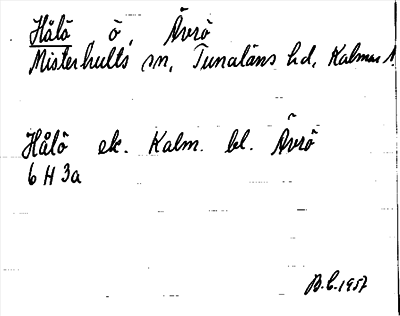 Hålö, ö, Ävrö
Misterhults sn, Tunaläns hd, Kalmar l.
Hålö ek. Kalm. bl. Ävrö
6 H 3a
B.C. 1957